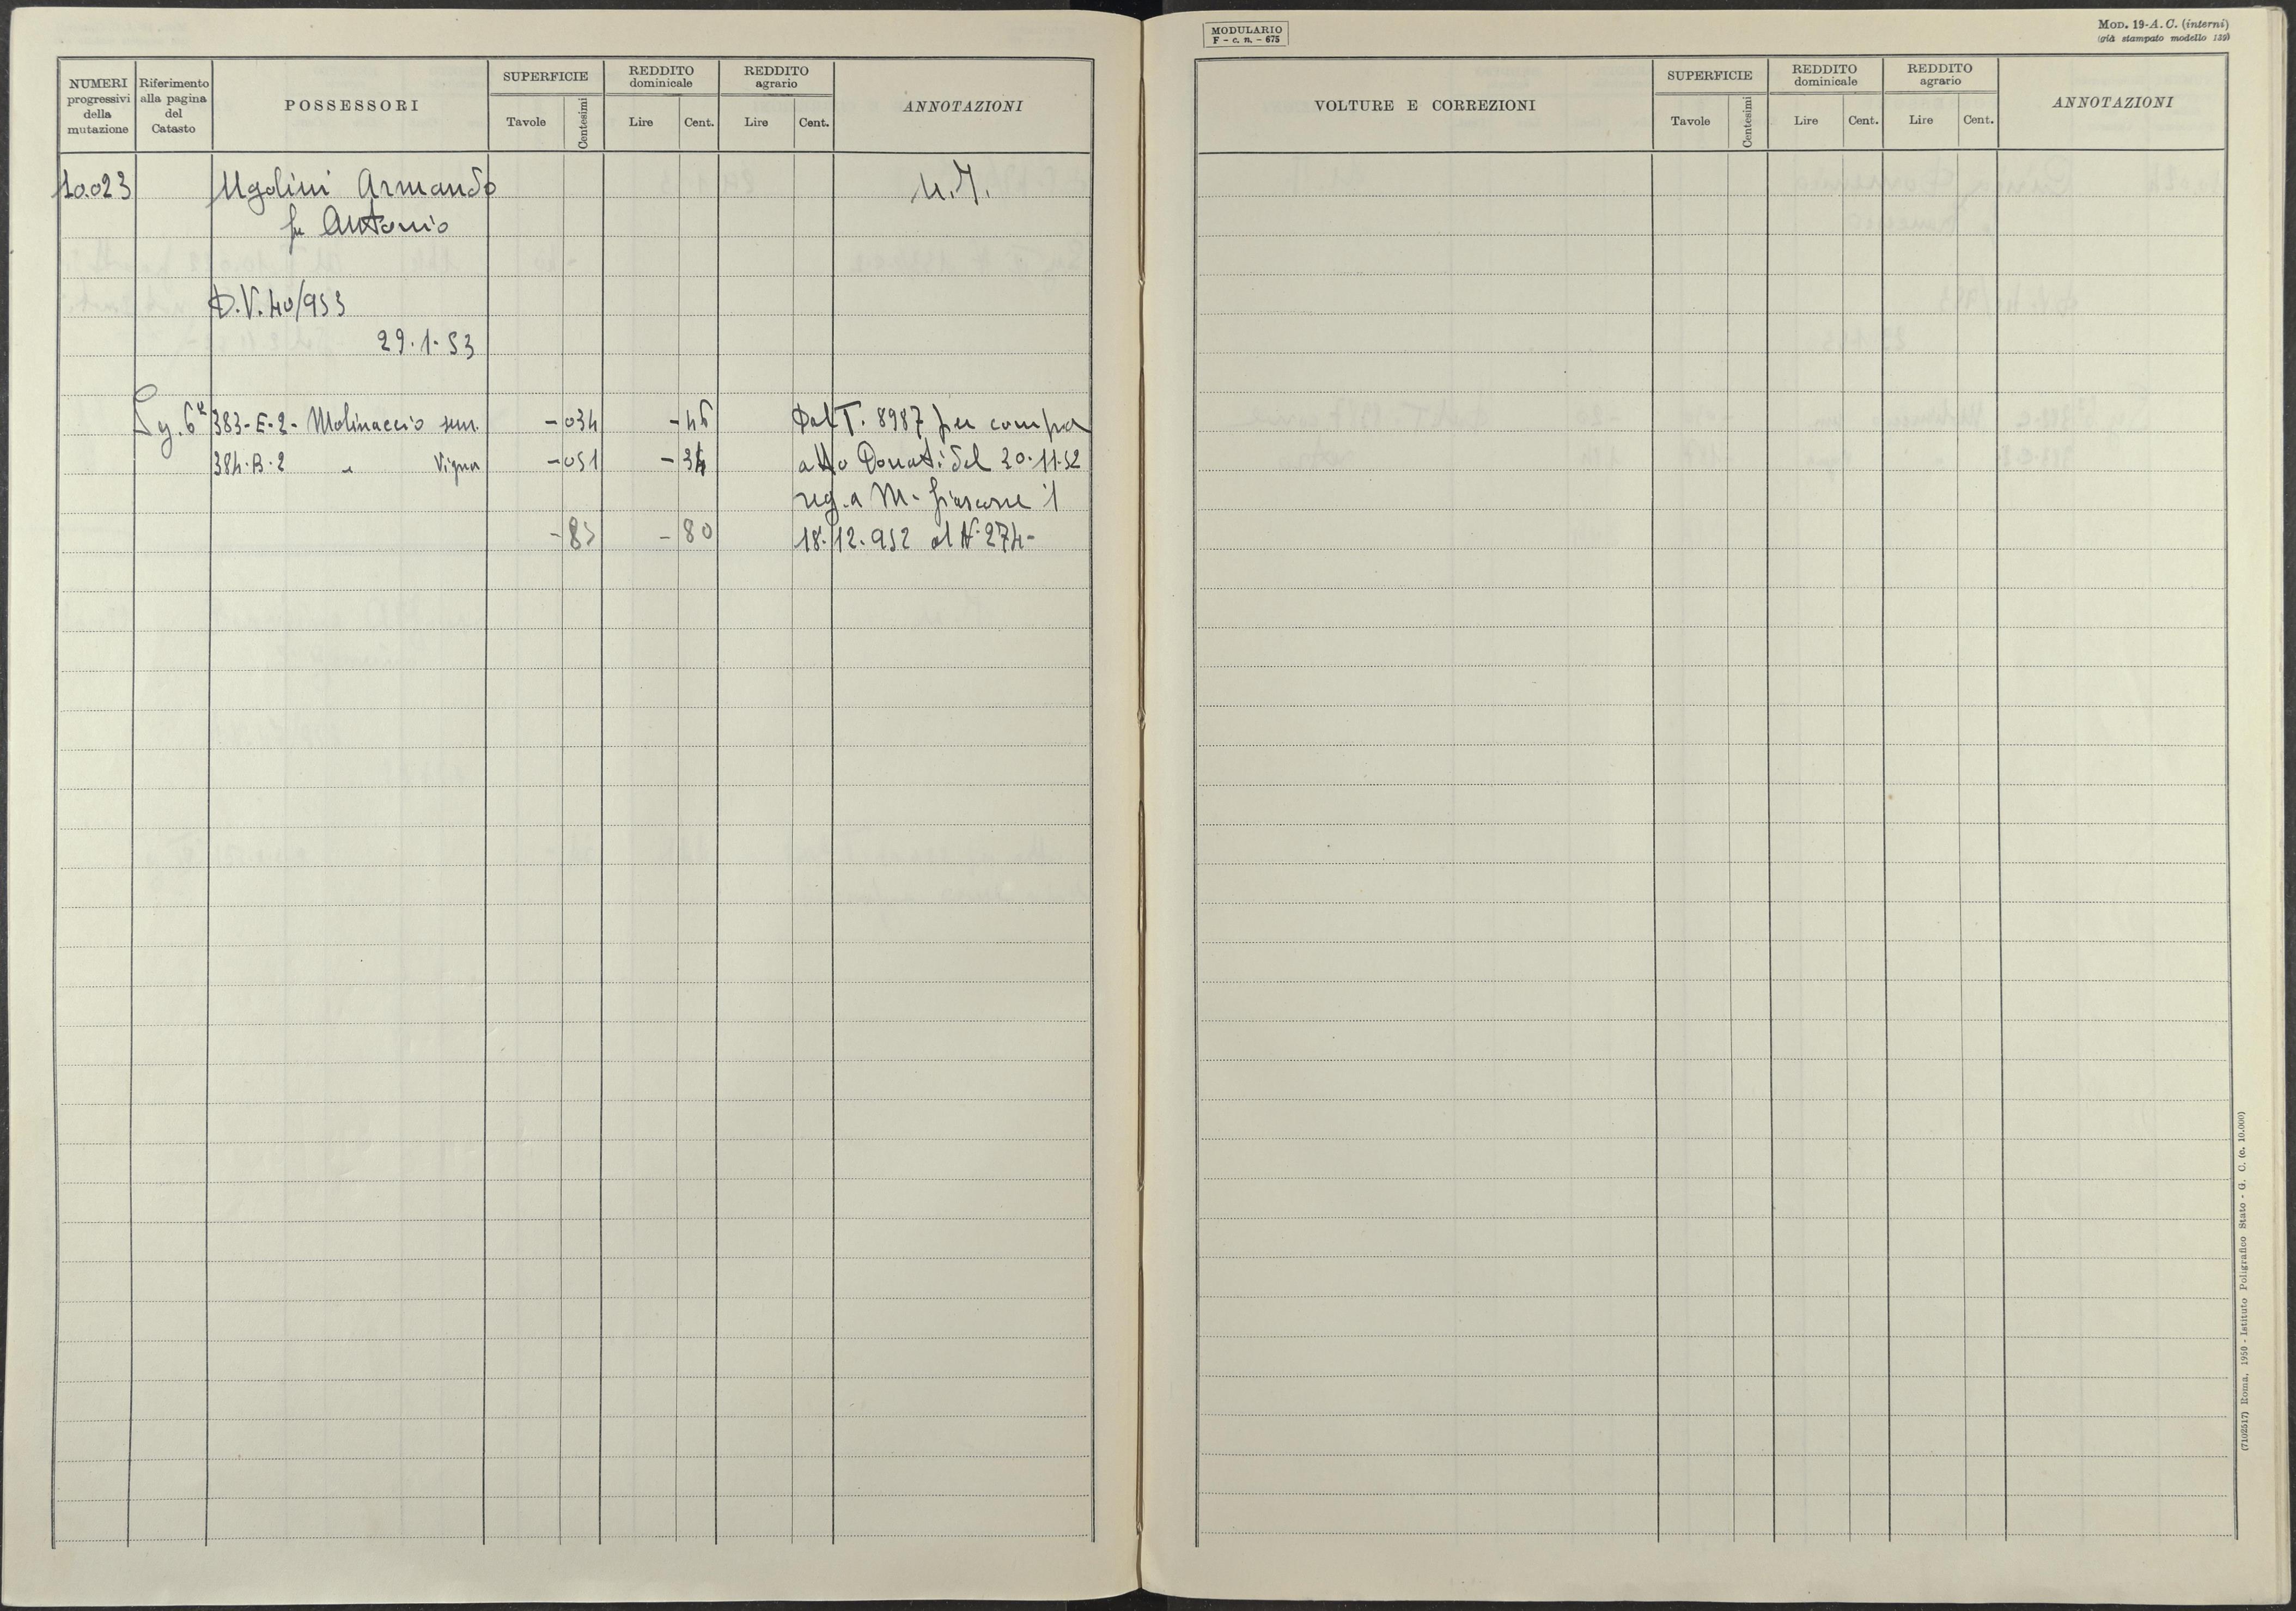 NUMERI progressivi della mutazione
Riferimento alla pagina del Catasto
POSSESSORI
SUPERFICIE
Tavole
Centesimi
REDDITO dominicale
Lire
Cent.
REDDITO agrario
Lire
Cent.
ANNOTAZIONI
10.023 Ugolini Armando
fu Antonio
D.V. 40/953
29.1.53
383-E-2- Molinaccio sem. -034 -46 Dal T. 8987 per compra
384-B-2 " Vigna -051 -34 atto Donati del 30.11.52
reg. a M. il
-85 -80 18.12.952 al N. 274-
MODULARIO
F - c. n. - 675
MOD. 19-A. C. (interni)
(già stampato modello 139)
VOLTURE E CORREZIONI
SUPERFICIE
Tavole
Centesimi
REDDITO dominicale
Lire
Cent.
REDDITO agrario
Lire
Cent.
ANNOTAZIONI
(7102517) Roma, 1950 - Istituto Poligrafico Stato - G. C. (c. 10.000)